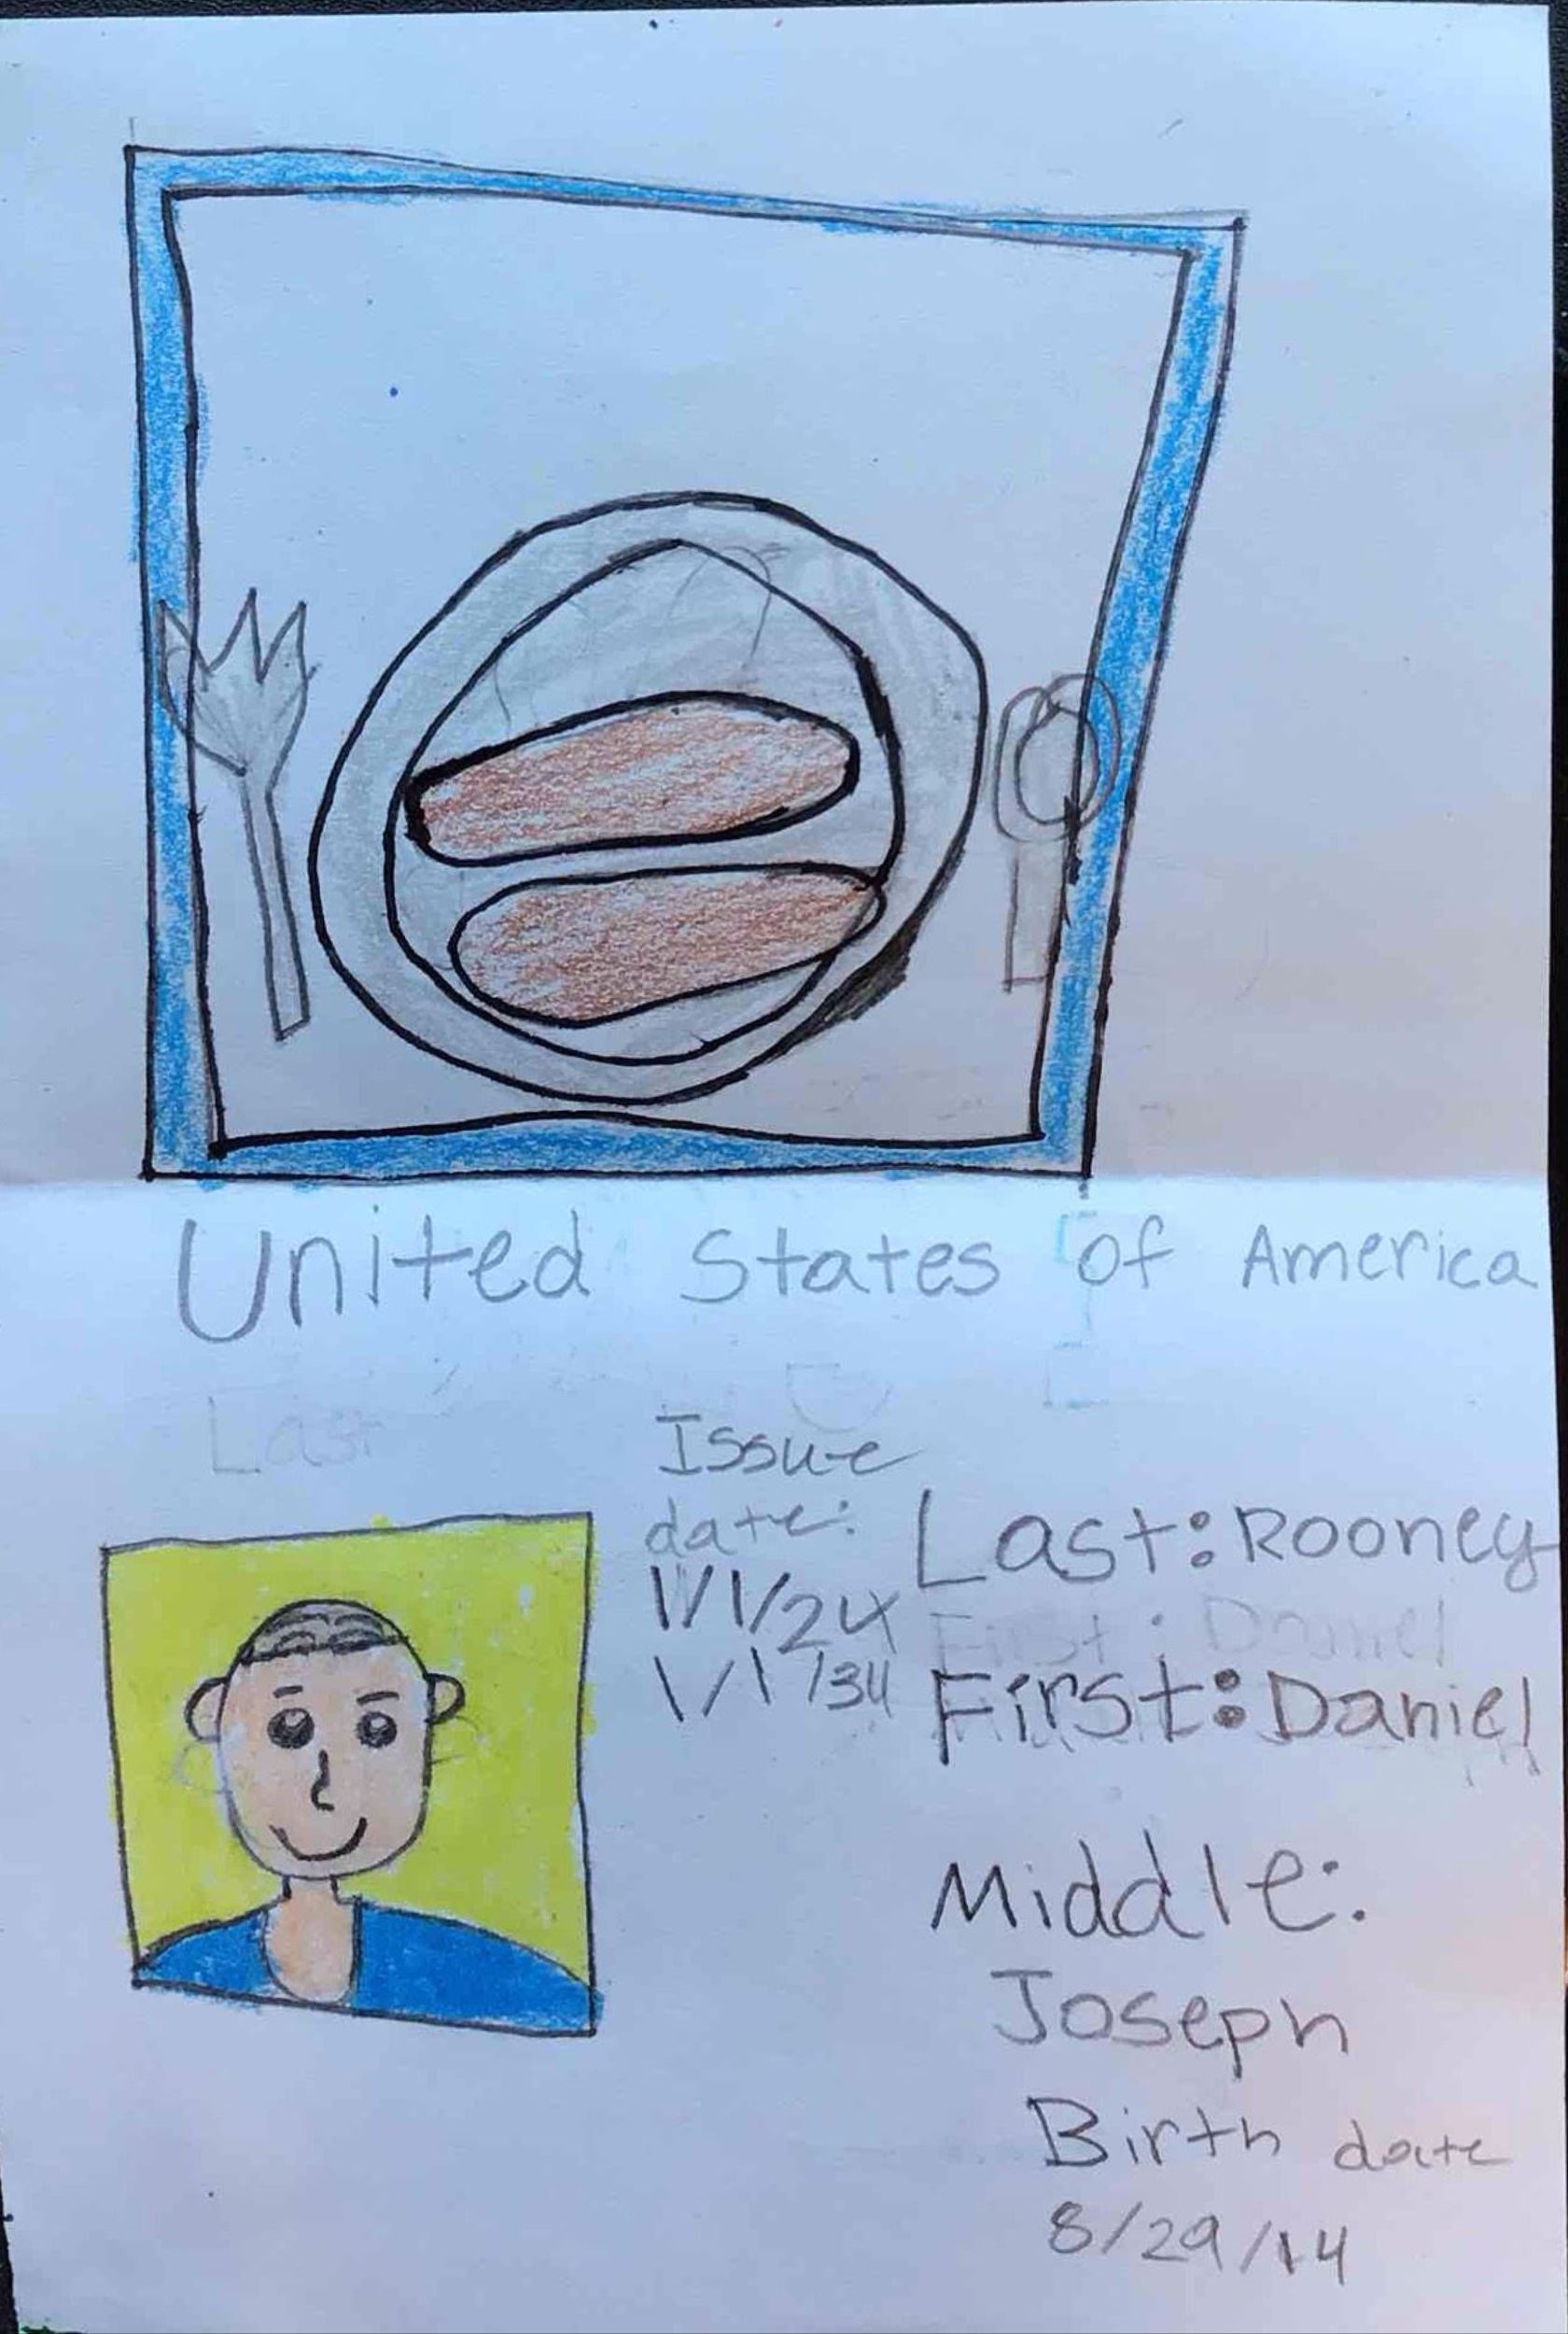 United States of America
Last
Issue
date:
1/1/24
1/1/34
Last: Rooney
First: Daniel
First: Daniel
Middle:
Joseph
Birth date
8/29/14